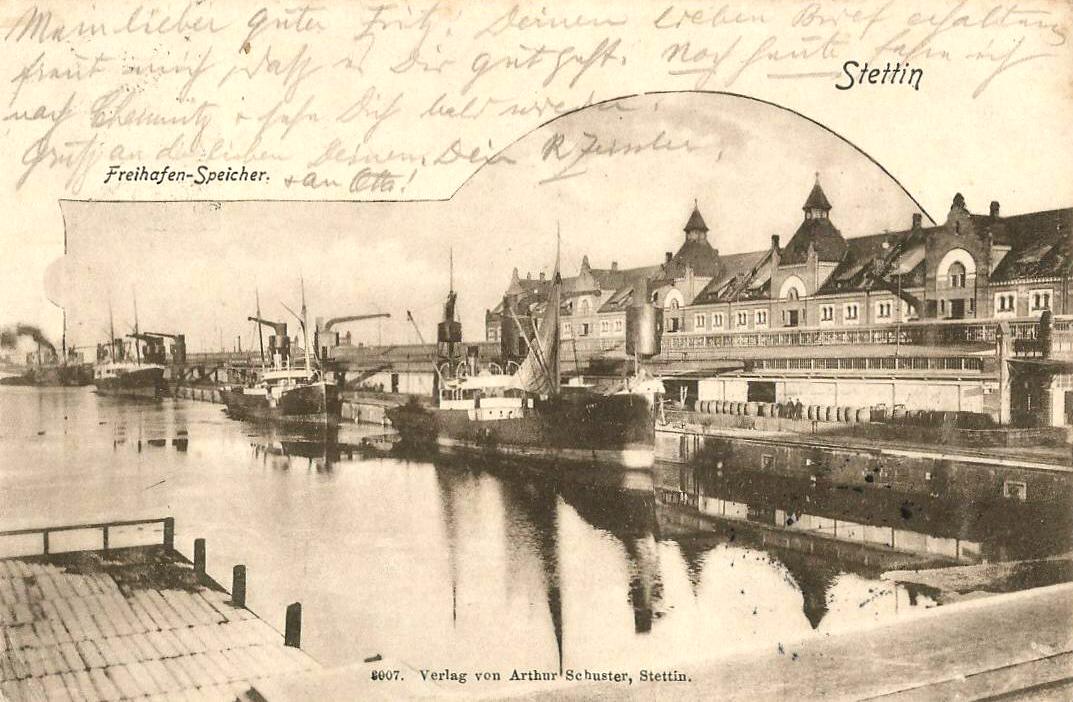 Mein lieber guter Fritz! Deinen lieben Brief erhalten,
freut mich, daß es Dir gut geht. Noch heute fahre ich
Stettin
nach Chemnitz + sehe Dich bald wieder.
Gruß an die lieben Deinen. Dein R
Freihafen-Speicher.
+ an Otto!
8007. Verlag von Arthur Schuster, Stettin.